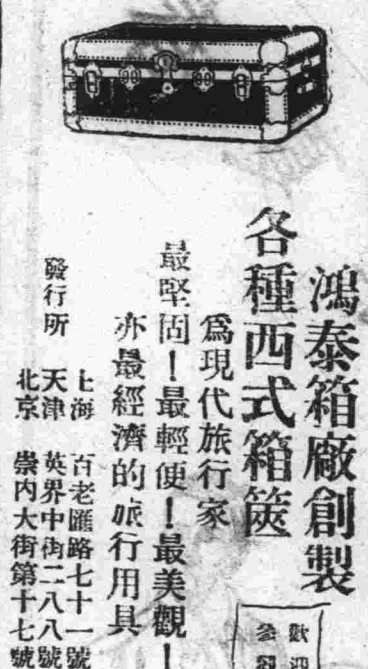 鴻泰箱廠創製
各種西式箱篋
為現代旅行家
最堅固！最輕便！最美觀！
亦最經濟的旅行用具
發行所
上海 百老匯路七十一號
天津 英界中街二八八號
北京 崇內大街第十七號
歡迎
參